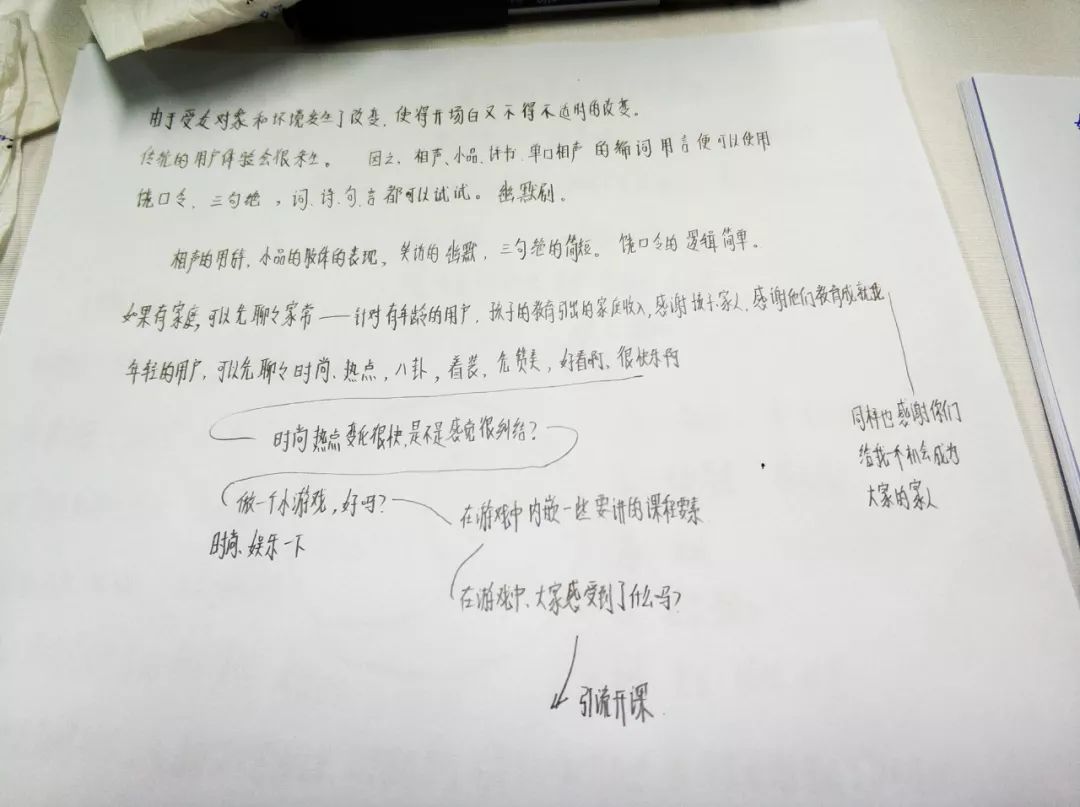 由于受友对象和环境发生了改变，使得开场白又不得不适时的改变。
传统的用户体验会很未生。 因之，相声、小品、评书、单口相声 的编词用言便可以使用
饶口令、三句绝，词、诗、句、言都可以试试。幽默剧。
相声的用辞，小品的肢体的表现，笑访的幽默，三句绝的简短。饶口令的逻辑简单。
如果有家庭，可以先聊聊家常——针对有年龄的用户，孩子的教育引出的家庭收入，感谢孩子、家人，感谢他们教育成就我
年轻的用户，可以先聊聊时尚、热点，八卦，着装、先赞美，好看啊、很快乐啊
时尚热点变化很快，是不是感觉很纠结？
同样也感谢你们
给我个机会成为
大家的家人
做一个小游戏，好吗？
时尚、娱乐一下
在游戏中内嵌一些要讲的课程要素
在游戏中、大家感受到了什么吗？
引流开课